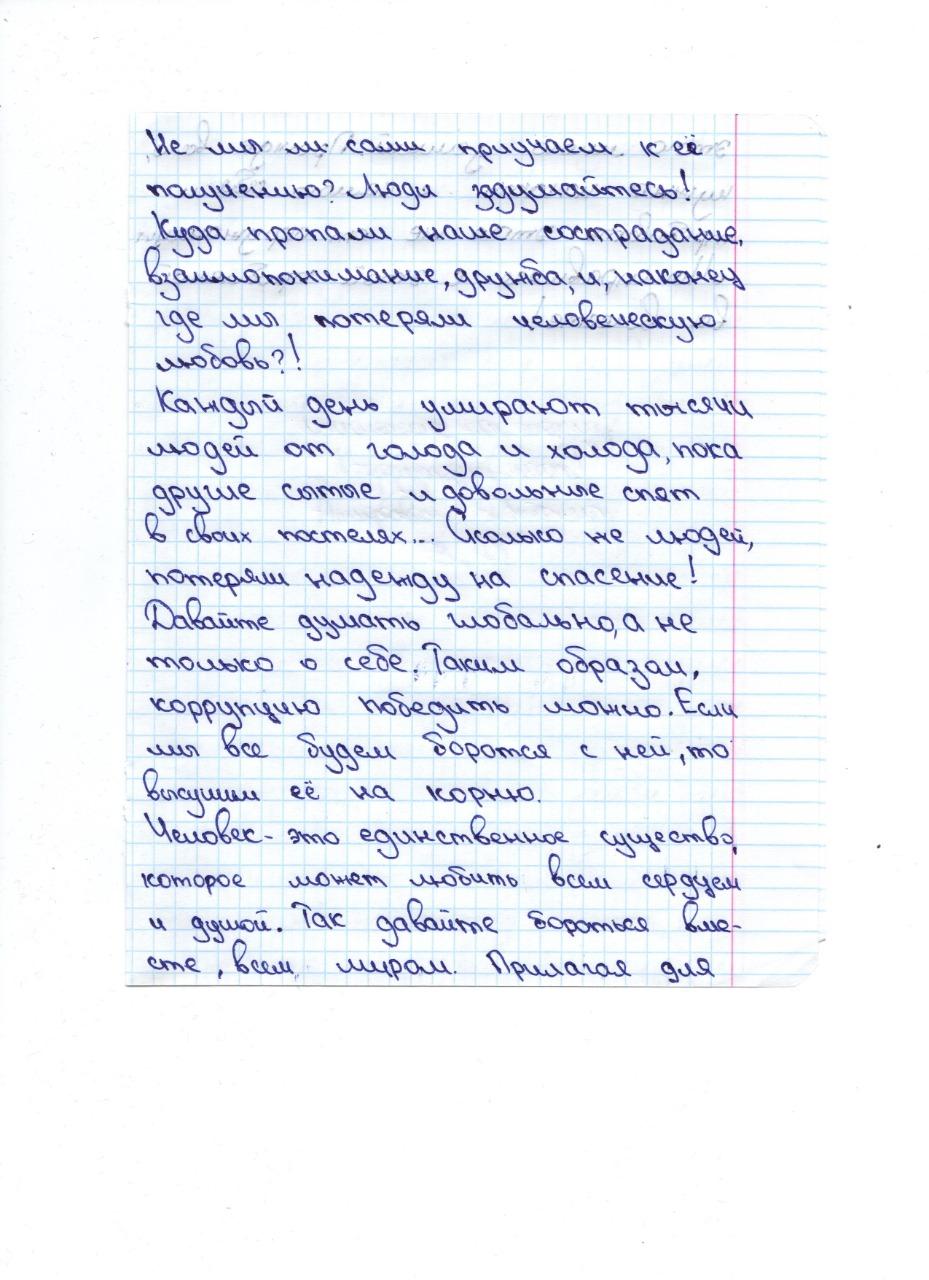 Не мы ли сами приучаем к её
получению? Люди здумайтесь!
Куда пропали наше сострадание,
взаимопонимание, дружба, и, наконец
где мы потеряли человеческую
любовь?!
Каждый день умирают тысячи
людей от голода и холода, пока
другие сытые и довольные спят
в своих постелях... Сколько же людей,
потеряли надежду на спасение!
Давайте думать глобально, а не
только о себе. Таким образом,
коррупцию победить можно. Если
мы все будем боротся с ней, то
высушим её на корню.
Человек - это единственное существо,
которое может любить всем сердцем
и душой. Так давайте бороться вме-
сте, всем миром. Прилагая для